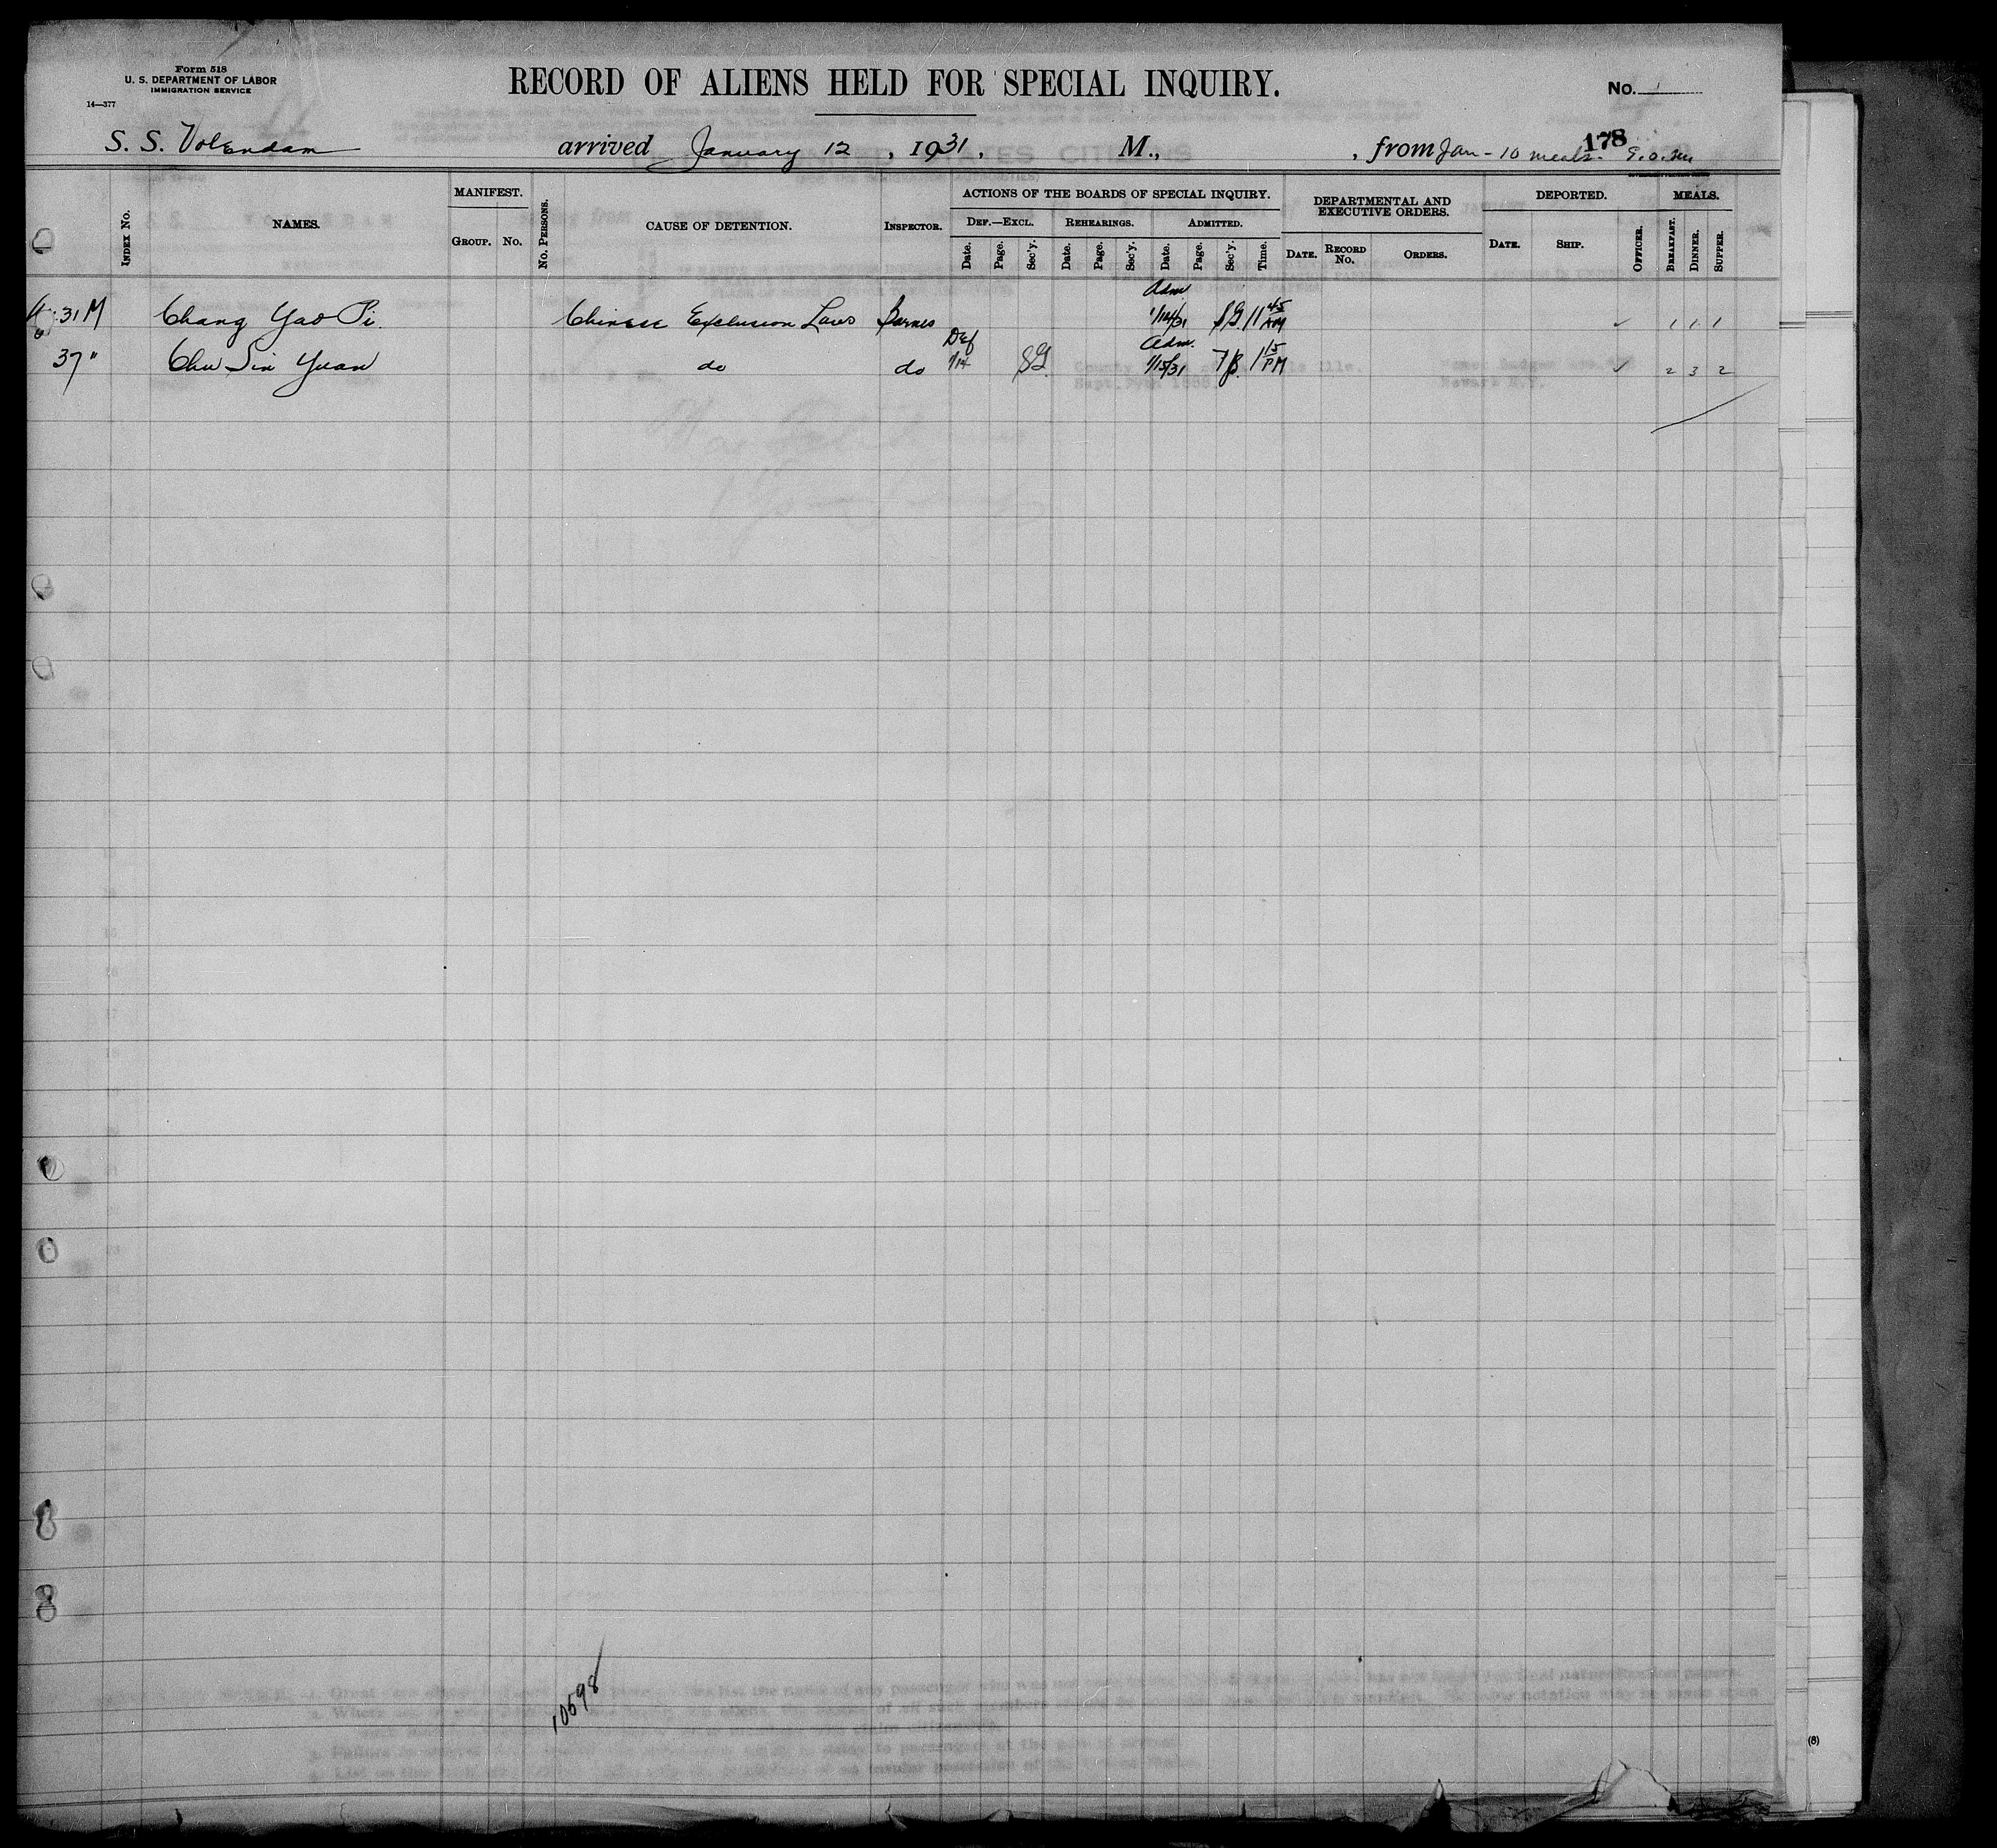 Form 518
U. S. DEPARTMENT OF LABOR
IMMIGRATION SERVICE
14—377
RECORD OF ALIENS HELD FOR SPECIAL INQUIRY.
No. 1
178
S. S. Volendam arrived January 12, 1931, M., , from Jan - 10 meals.
INDEX No. NAMES. MANIFEST. GROUP. No. No. PERSONS. CAUSE OF DETENTION. INSPECTOR. ACTIONS OF THE BOARDS OF SPECIAL INQUIRY. DEF.—EXCL. Date. Page. Sec'y. REHEARINGS. Date. Page. Sec'y. ADMITTED. Date. Page. Sec'y. Time. DEPARTMENTAL AND EXECUTIVE ORDERS. DATE. RECORD No. ORDERS. DEPORTED. DATE. SHIP. OFFICER. MEALS. BREAKFAST. DINNER. SUPPER.
31 M Chang Yao Pi. Chinese Exclusion Laws Barnes Adm 1/14/31 SG 11 45 AM ✓ 1 1 1
37 " Chu Sin Yuan do do Def 1/14 SG Adm. 1/15/31 FB. 1 15 PM ✓ 2 3 2
10598
(8)